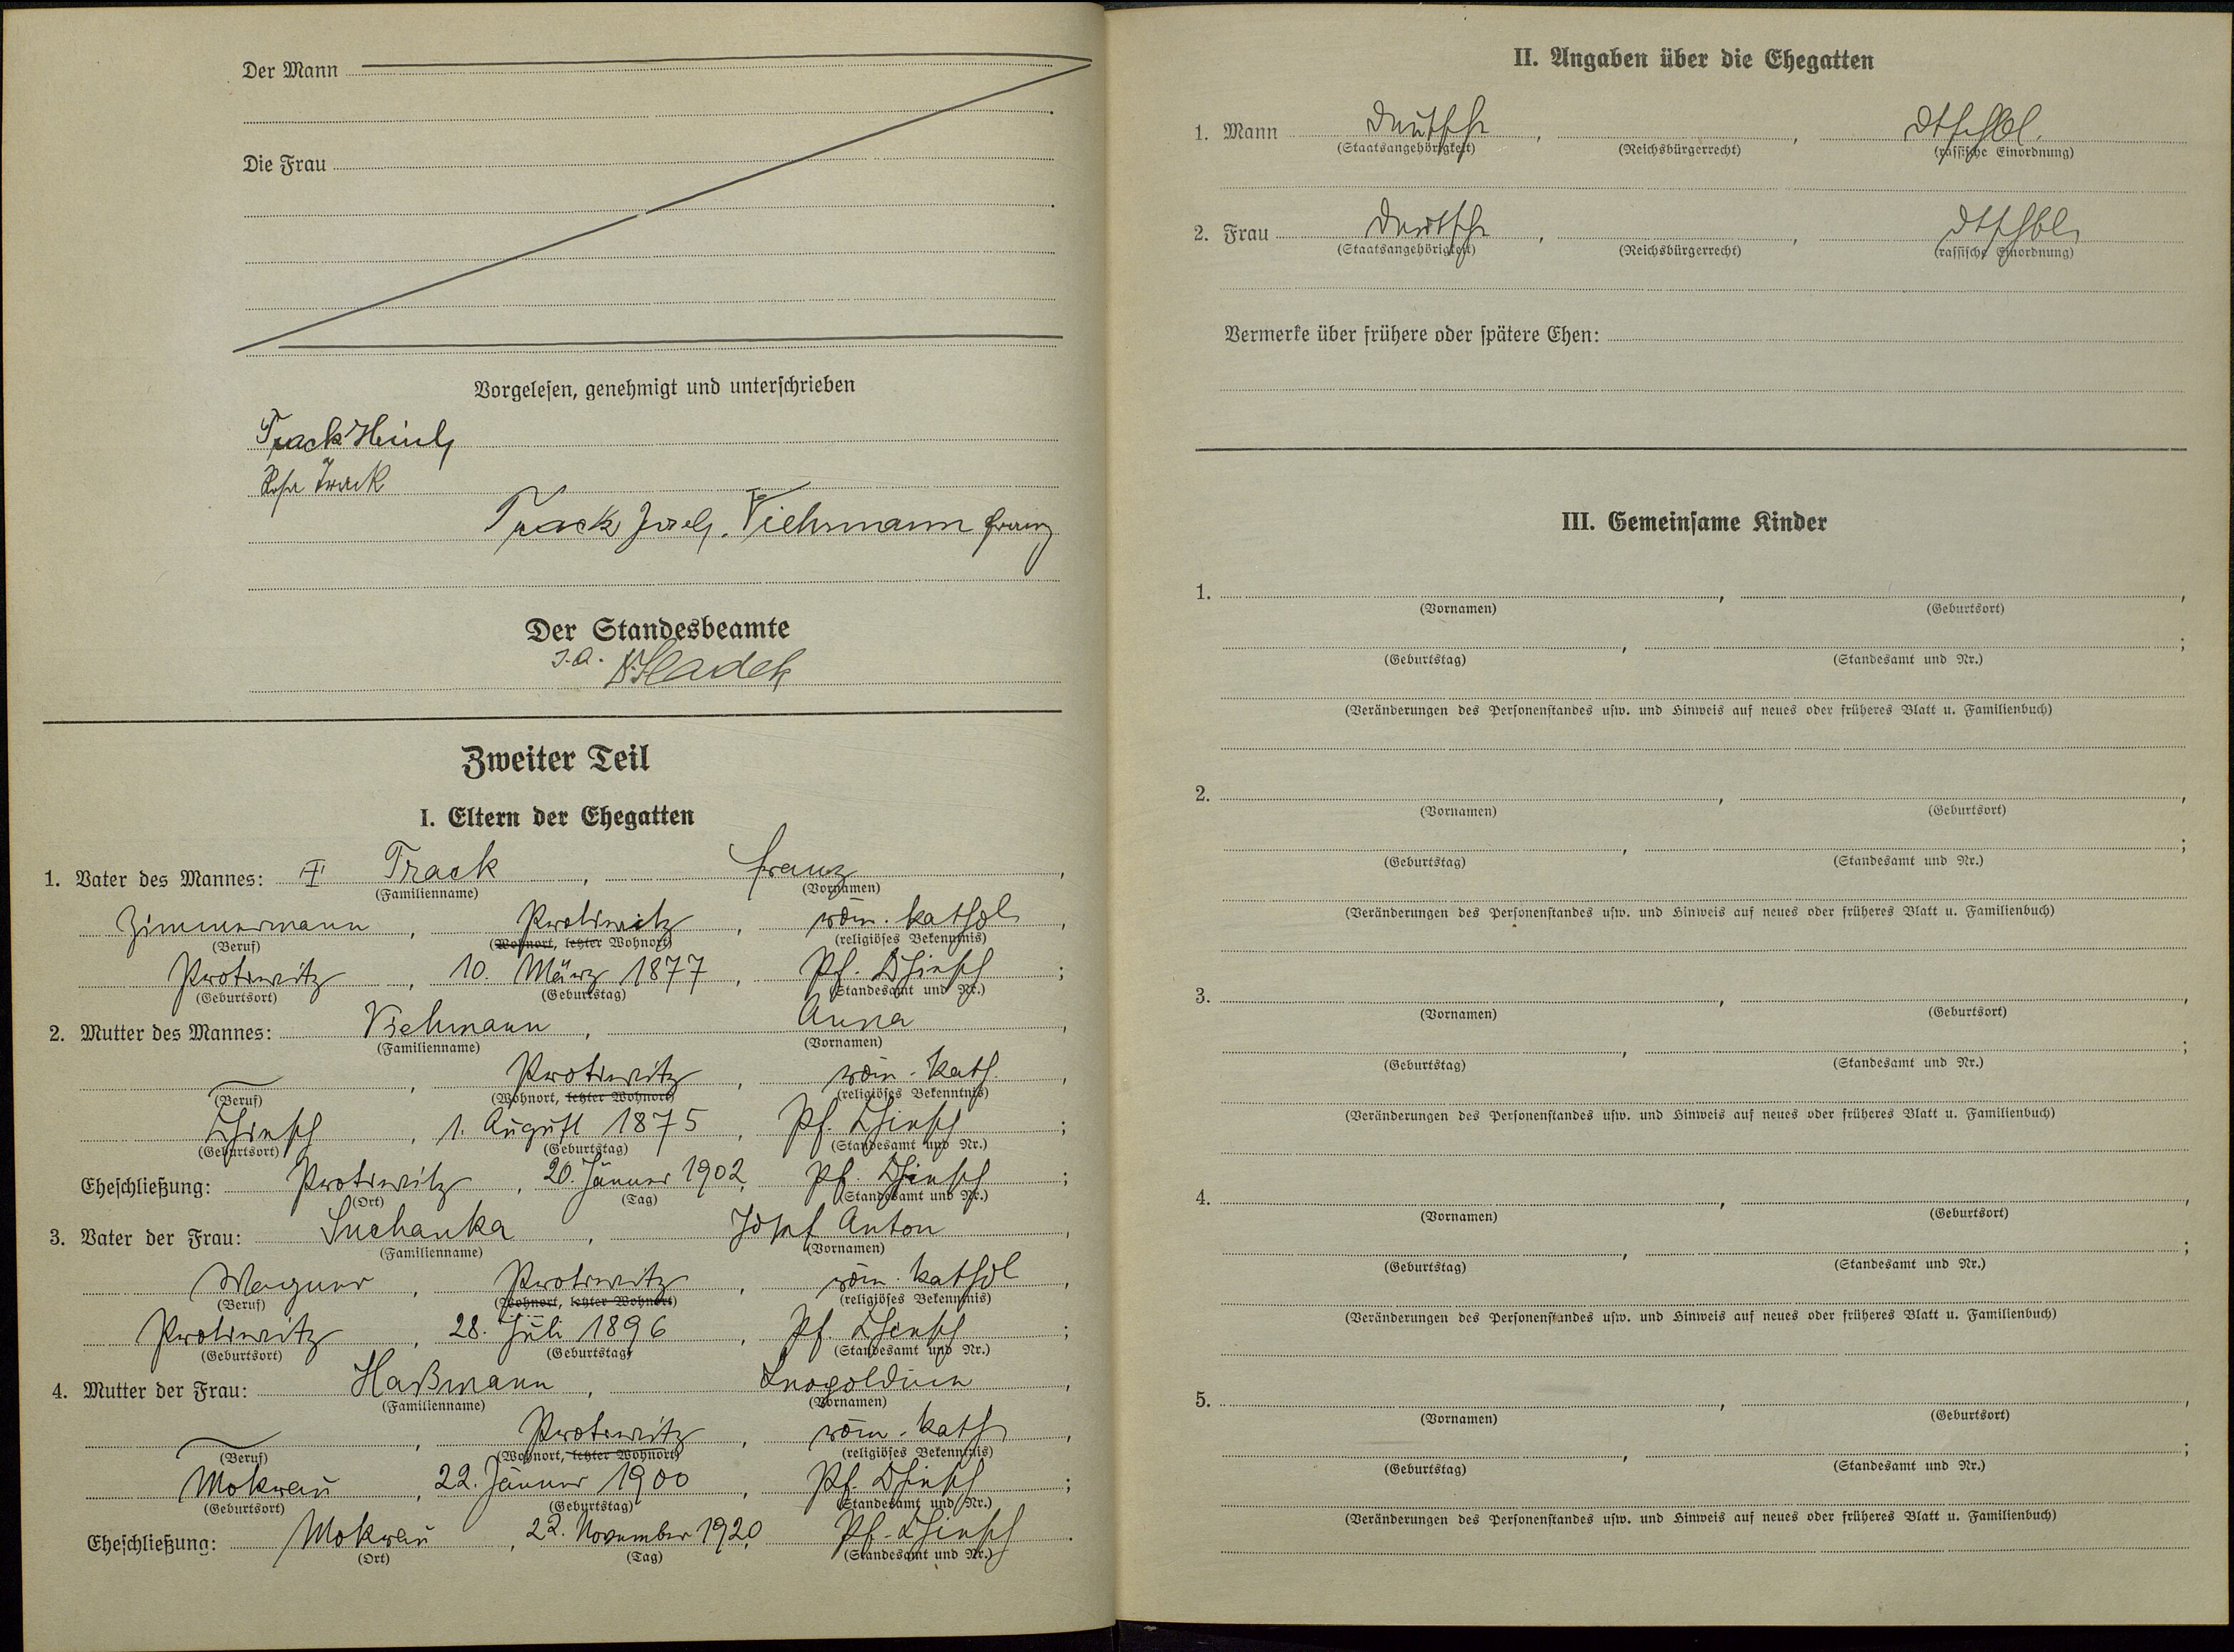 Der Mann
Die Frau
Vorgelesen, genehmigt und unterschrieben
Track
Rosa Track
Track Viehmann Franz
Der Standesbeamte
Zweiter Teil
I. Eltern der Ehegatten
1. Vater des Mannes: Track, Franz,
(Familienname) (Vornamen)
Zimmermann, Protiwitz, röm. kathol,
(Beruf) (Wohnort, letzter Wohnort) (religiöses Bekenntnis)
Protiwitz, 10. März 1877, Pf.
(Geburtsort) (Geburtstag) (Standesamt und Nr.) ;
2. Mutter des Mannes: Viehmann, Anna,
(Familienname) (Vornamen)
Protiwitz, röm. kath,
(Beruf) (Wohnort, letzter Wohnort) (religiöses Bekenntnis)
, 1. August 1875, Pf. ;
(Geburtsort) (Geburtstag) (Standesamt und Nr.)
Eheschließung: Protiwitz, 20. Jänner 1902, Pf. ;
(Ort) (Tag) (Standesamt und Nr.)
3. Vater der Frau: Suchanka, Josef Anton,
(Familienname) (Vornamen)
Wagner, Protiwitz, röm. kathol,
(Beruf) (Wohnort, letzter Wohnort) (religiöses Bekenntnis)
Protiwitz, 28. Juli 1896, Pf. ;
(Geburtsort) (Geburtstag) (Standesamt und Nr.)
4. Mutter der Frau: Haßmann, Leopoldine,
(Familienname) (Vornamen)
Protiwitz, röm. kath,
(Beruf) (Wohnort, letzter Wohnort) (religiöses Bekenntnis)
Mokrau, 22. Jänner 1900, Pf. ;
(Geburtsort) (Geburtstag) (Standesamt und Nr.)
Eheschließung: Mokrau, 22. November 1920, Pf. .
(Ort) (Tag) (Standesamt und Nr.)
II. Angaben über die Ehegatten
1. Mann Deutsche, , dtschbl.
(Staatsangehörigkeit) (Reichsbürgerrecht) (rassische Einordnung)
2. Frau Deutsche, , dtschbl.
(Staatsangehörigkeit) (Reichsbürgerrecht) (rassische Einordnung)
Vermerke über frühere oder spätere Ehen:
III. Gemeinsame Kinder
1. , ,
(Vornamen) (Geburtsort)
, ;
(Geburtstag) (Standesamt und Nr.)
(Veränderungen des Personenstandes usw. und Hinweis auf neues oder früheres Blatt u. Familienbuch)
2. , ,
(Vornamen) (Geburtsort)
, ;
(Geburtstag) (Standesamt und Nr.)
(Veränderungen des Personenstandes usw. und Hinweis auf neues oder früheres Blatt u. Familienbuch)
3. , ,
(Vornamen) (Geburtsort)
, ;
(Geburtstag) (Standesamt und Nr.)
(Veränderungen des Personenstandes usw. und Hinweis auf neues oder früheres Blatt u. Familienbuch)
4. , ,
(Vornamen) (Geburtsort)
, ;
(Geburtstag) (Standesamt und Nr.)
(Veränderungen des Personenstandes usw. und Hinweis auf neues oder früheres Blatt u. Familienbuch)
5. , ,
(Vornamen) (Geburtsort)
, ;
(Geburtstag) (Standesamt und Nr.)
(Veränderungen des Personenstandes usw. und Hinweis auf neues oder früheres Blatt u. Familienbuch)